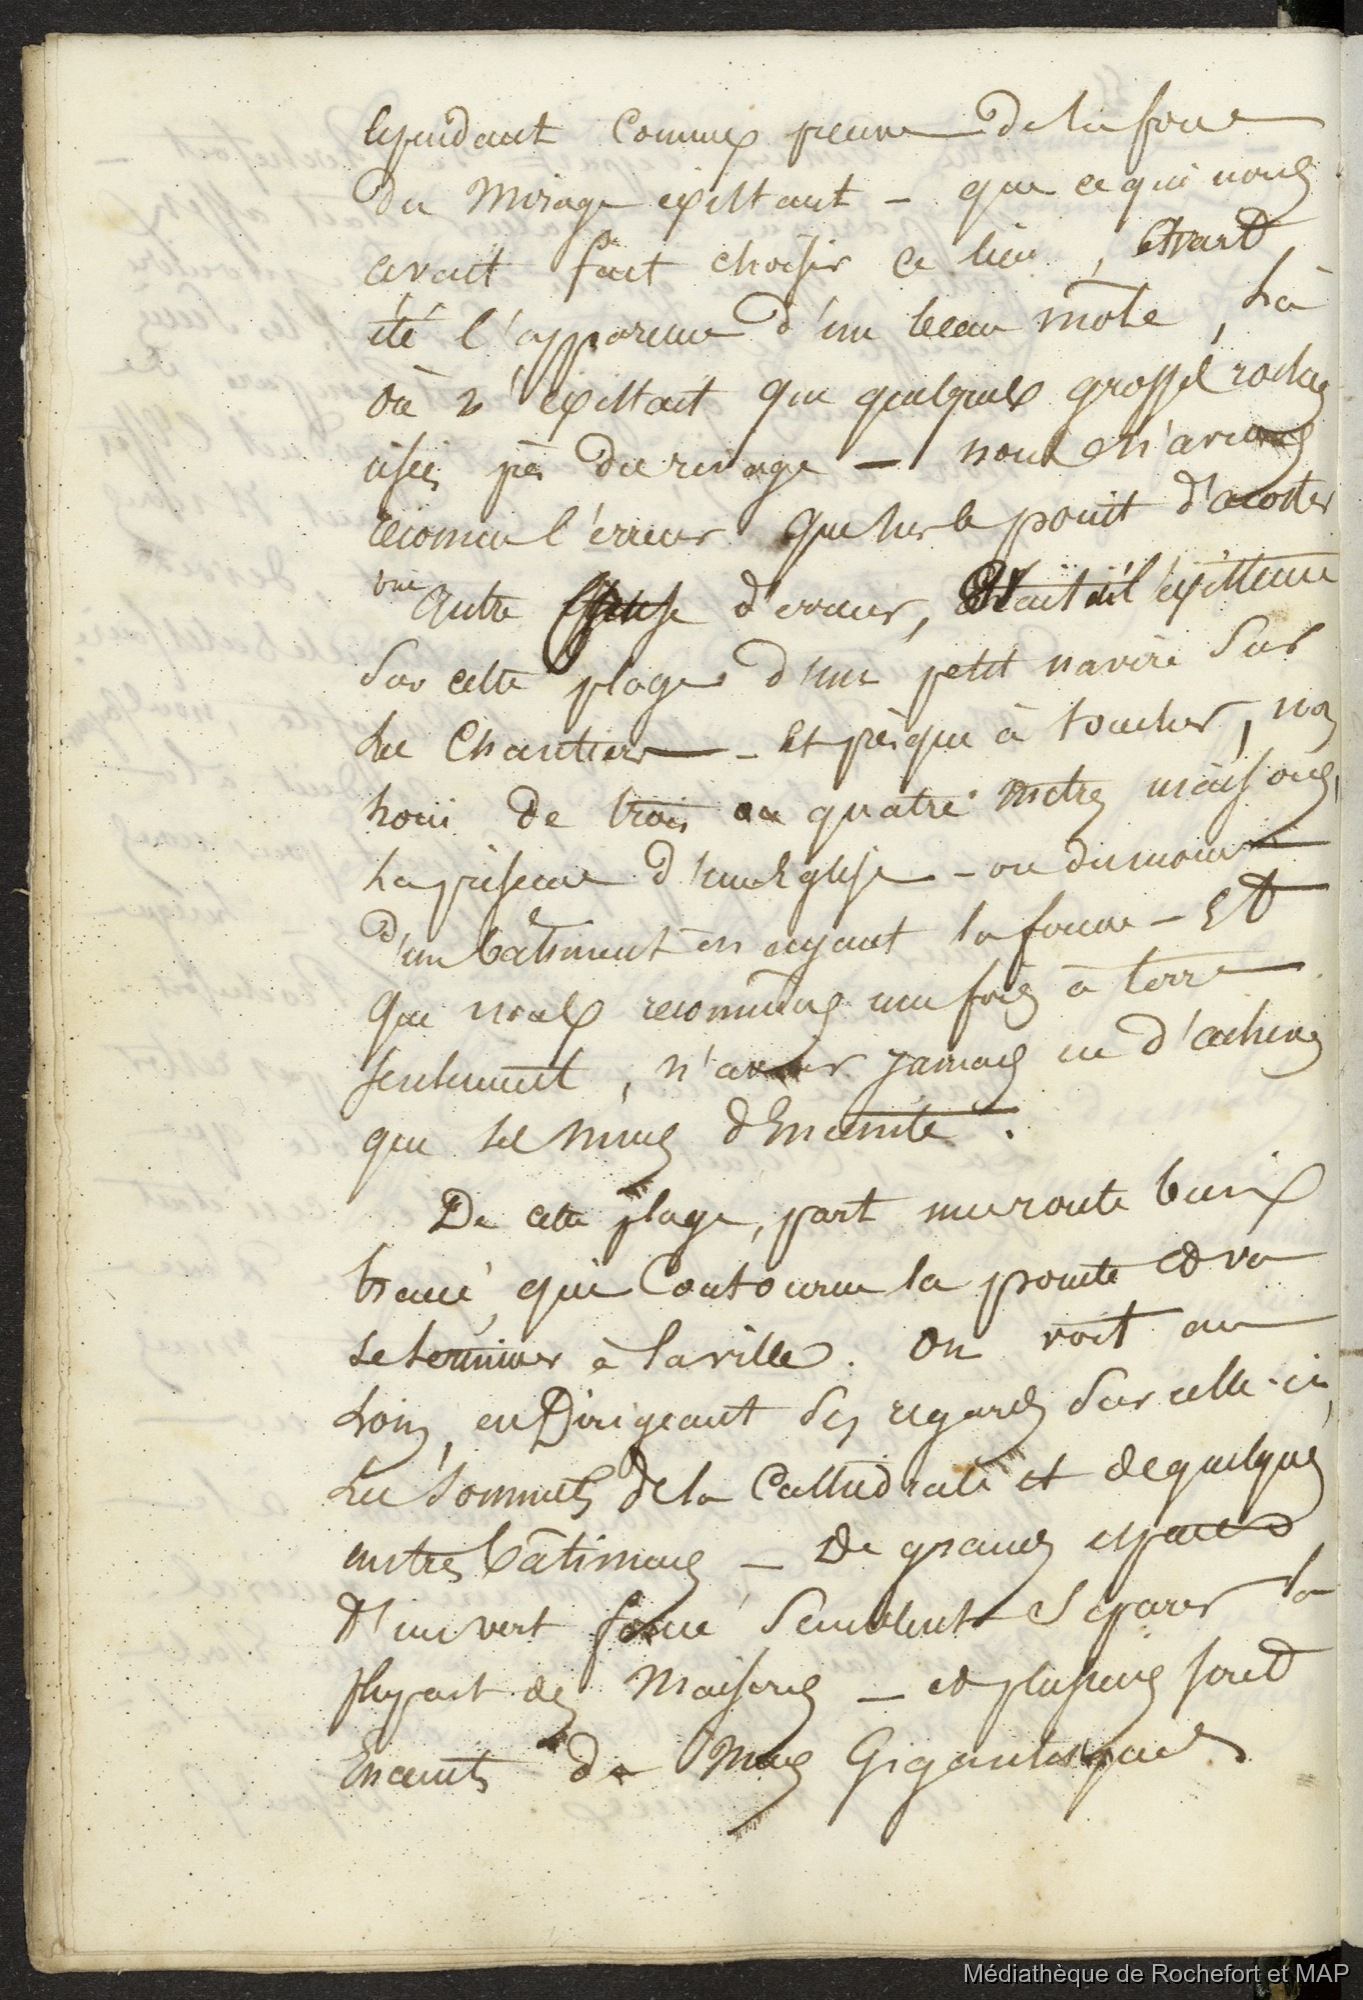 Cependant comme preuve de la force
du Mirage existant - que ce qui nous
avait fait choisir ce lieu, avait
été l'apparence d'un beau môle, là
où n'existait que quelques grosses roches
près du rivage — nous n'avions
reconnu l'erreur que sur le point d'acoster
une autre d'erreur, était l'existence
sur cette plage d'un petit navire sur
les chantiers - et presque à toucher, non
de trois ou quatre maisons,
la présence d'une Eglise - ou du moins
d'un bâtiment en ayant la forme - Et
que nous reconnûmes une fois à terre
seulement, n'avoir jamais eu d'achevé
que les murs d'Enceinte.
De cette plage, part une route bien
tracée, qui Contourne la pointe et va
se terminer à la ville. On voit au
Loin, en Dirigeant ses regards sur celle-ci,
les sommets de la Cathédrale et de quelques
autres bâtimens — De grands espaces
d'un vert foncé semblent séparer la
plupart des Maisons — et plusieurs sont
Enceints de Murs Gigantesques
Médiathèque de Rochefort et MAP